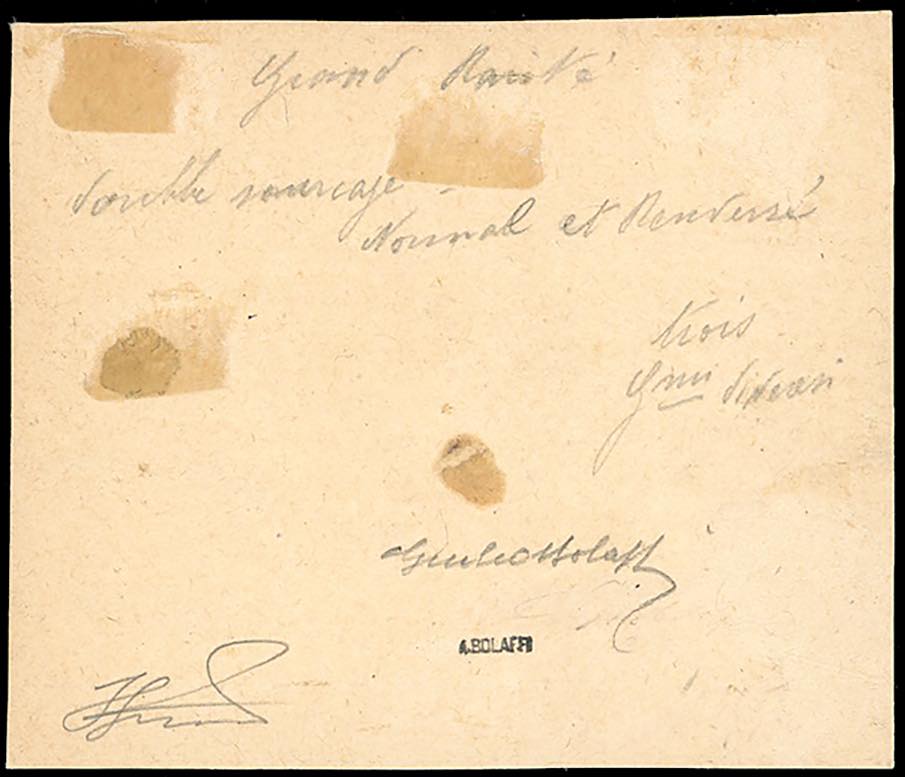 Grand Rarité
double surcage
Normal et Renversé
trois
Giulio Bolaffi
A.BOLAFFI